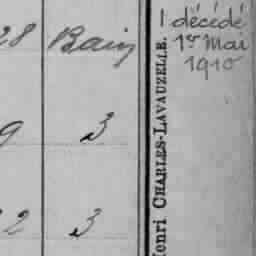 28 Bain
9 3
22 3
Henri CHARLES-LAVAUZELLE.
| décédé
1er Mai
1910